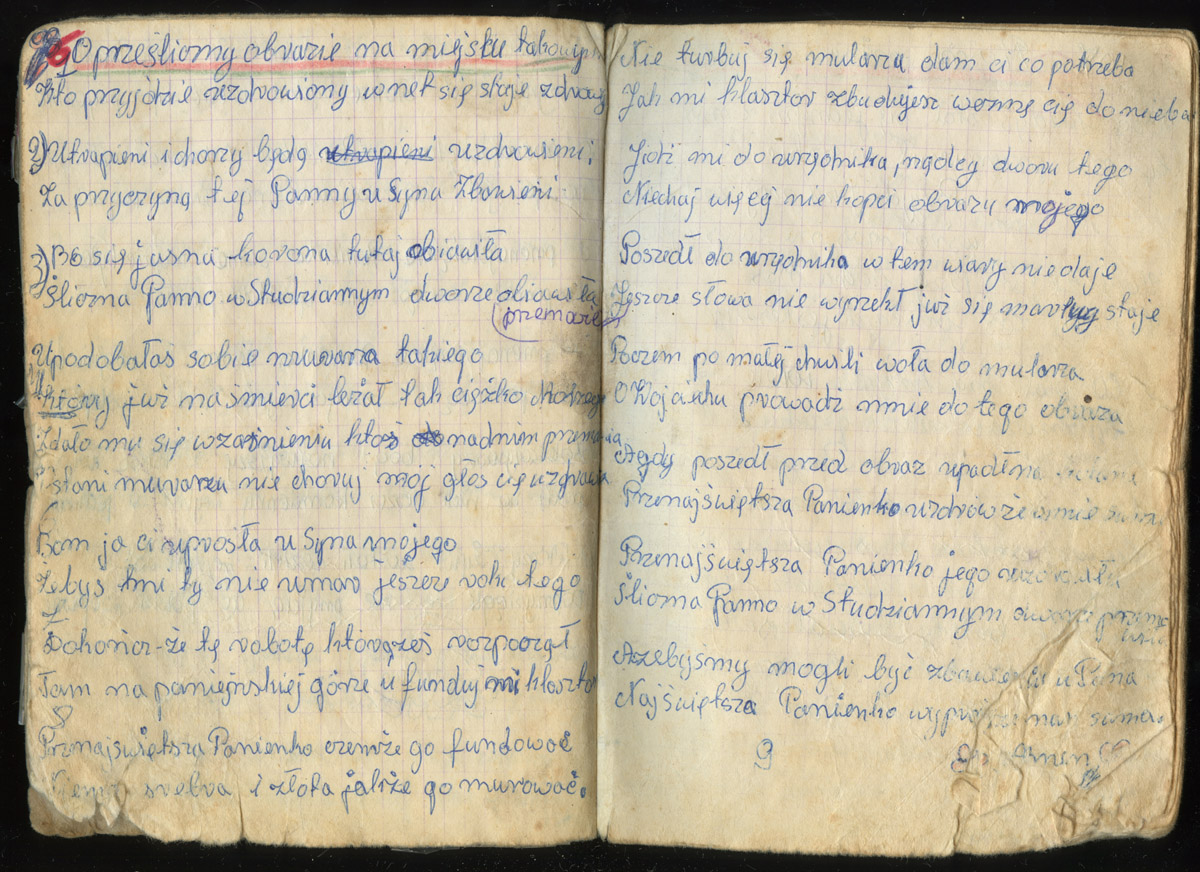 O prześliomy obrazie na miejsku takowym
Kto przyjdzie uzdrowiony wnet się staje zdrowy
2) Utrapieni i chorzy będą utrapieni uzdrowieni:
Za przyczyną tej Panny u Syna Zbawieni
3) Bo się jasna korona tutaj objawiła
Śliczna Panno w Studziannym dworze objawiła
(przemare
Upodobałaś sobie muraza takiego
Który już na śmierci leżał tak ciężko
Zdało mu się wzaśnieniu ktoś nadnim
Wstani murarzu nie choruj mój głos cię uzdrawia
Bom ja ci uprosła u Syna mojego
Żebyś tmi ty nie umar jeszcze roku tego
Dokończ-że tę robotę którążeś rozpoczął
Tam na panieńskiej górze u funduj mi klasztor
Przenajświętsza Panienko czemże go fundować
srebra i złota jakże go murować.
Nie turbuj się mularzu dam ci co potrzeba
Jak mi klasztor zbudujesz wezmę cię do nieba
Jidź mi do urzędnika, rządcy dworu tego
Niechaj więcej nie kopci obrazu mojego
Poszedł do urzędnika w tem wiary nie daje
Jeszcze słowa nie wyrzekł już się martwy staje
Poczem po małej chwili woła do mularza
O Wojcinku prowadź mnie do tego obrazu
A gdy poszedł przed obraz upadł na
Przenajświętsza Panienko uzdrów że mnie
Przenajświętsza Panienko jego uzdrowiła
Śliczna Panno w Studziannym dworze
Ażebyśmy mogli być zbawieni u Pana
Najświętsza Panienko wyproś nam sama.
9
Amen